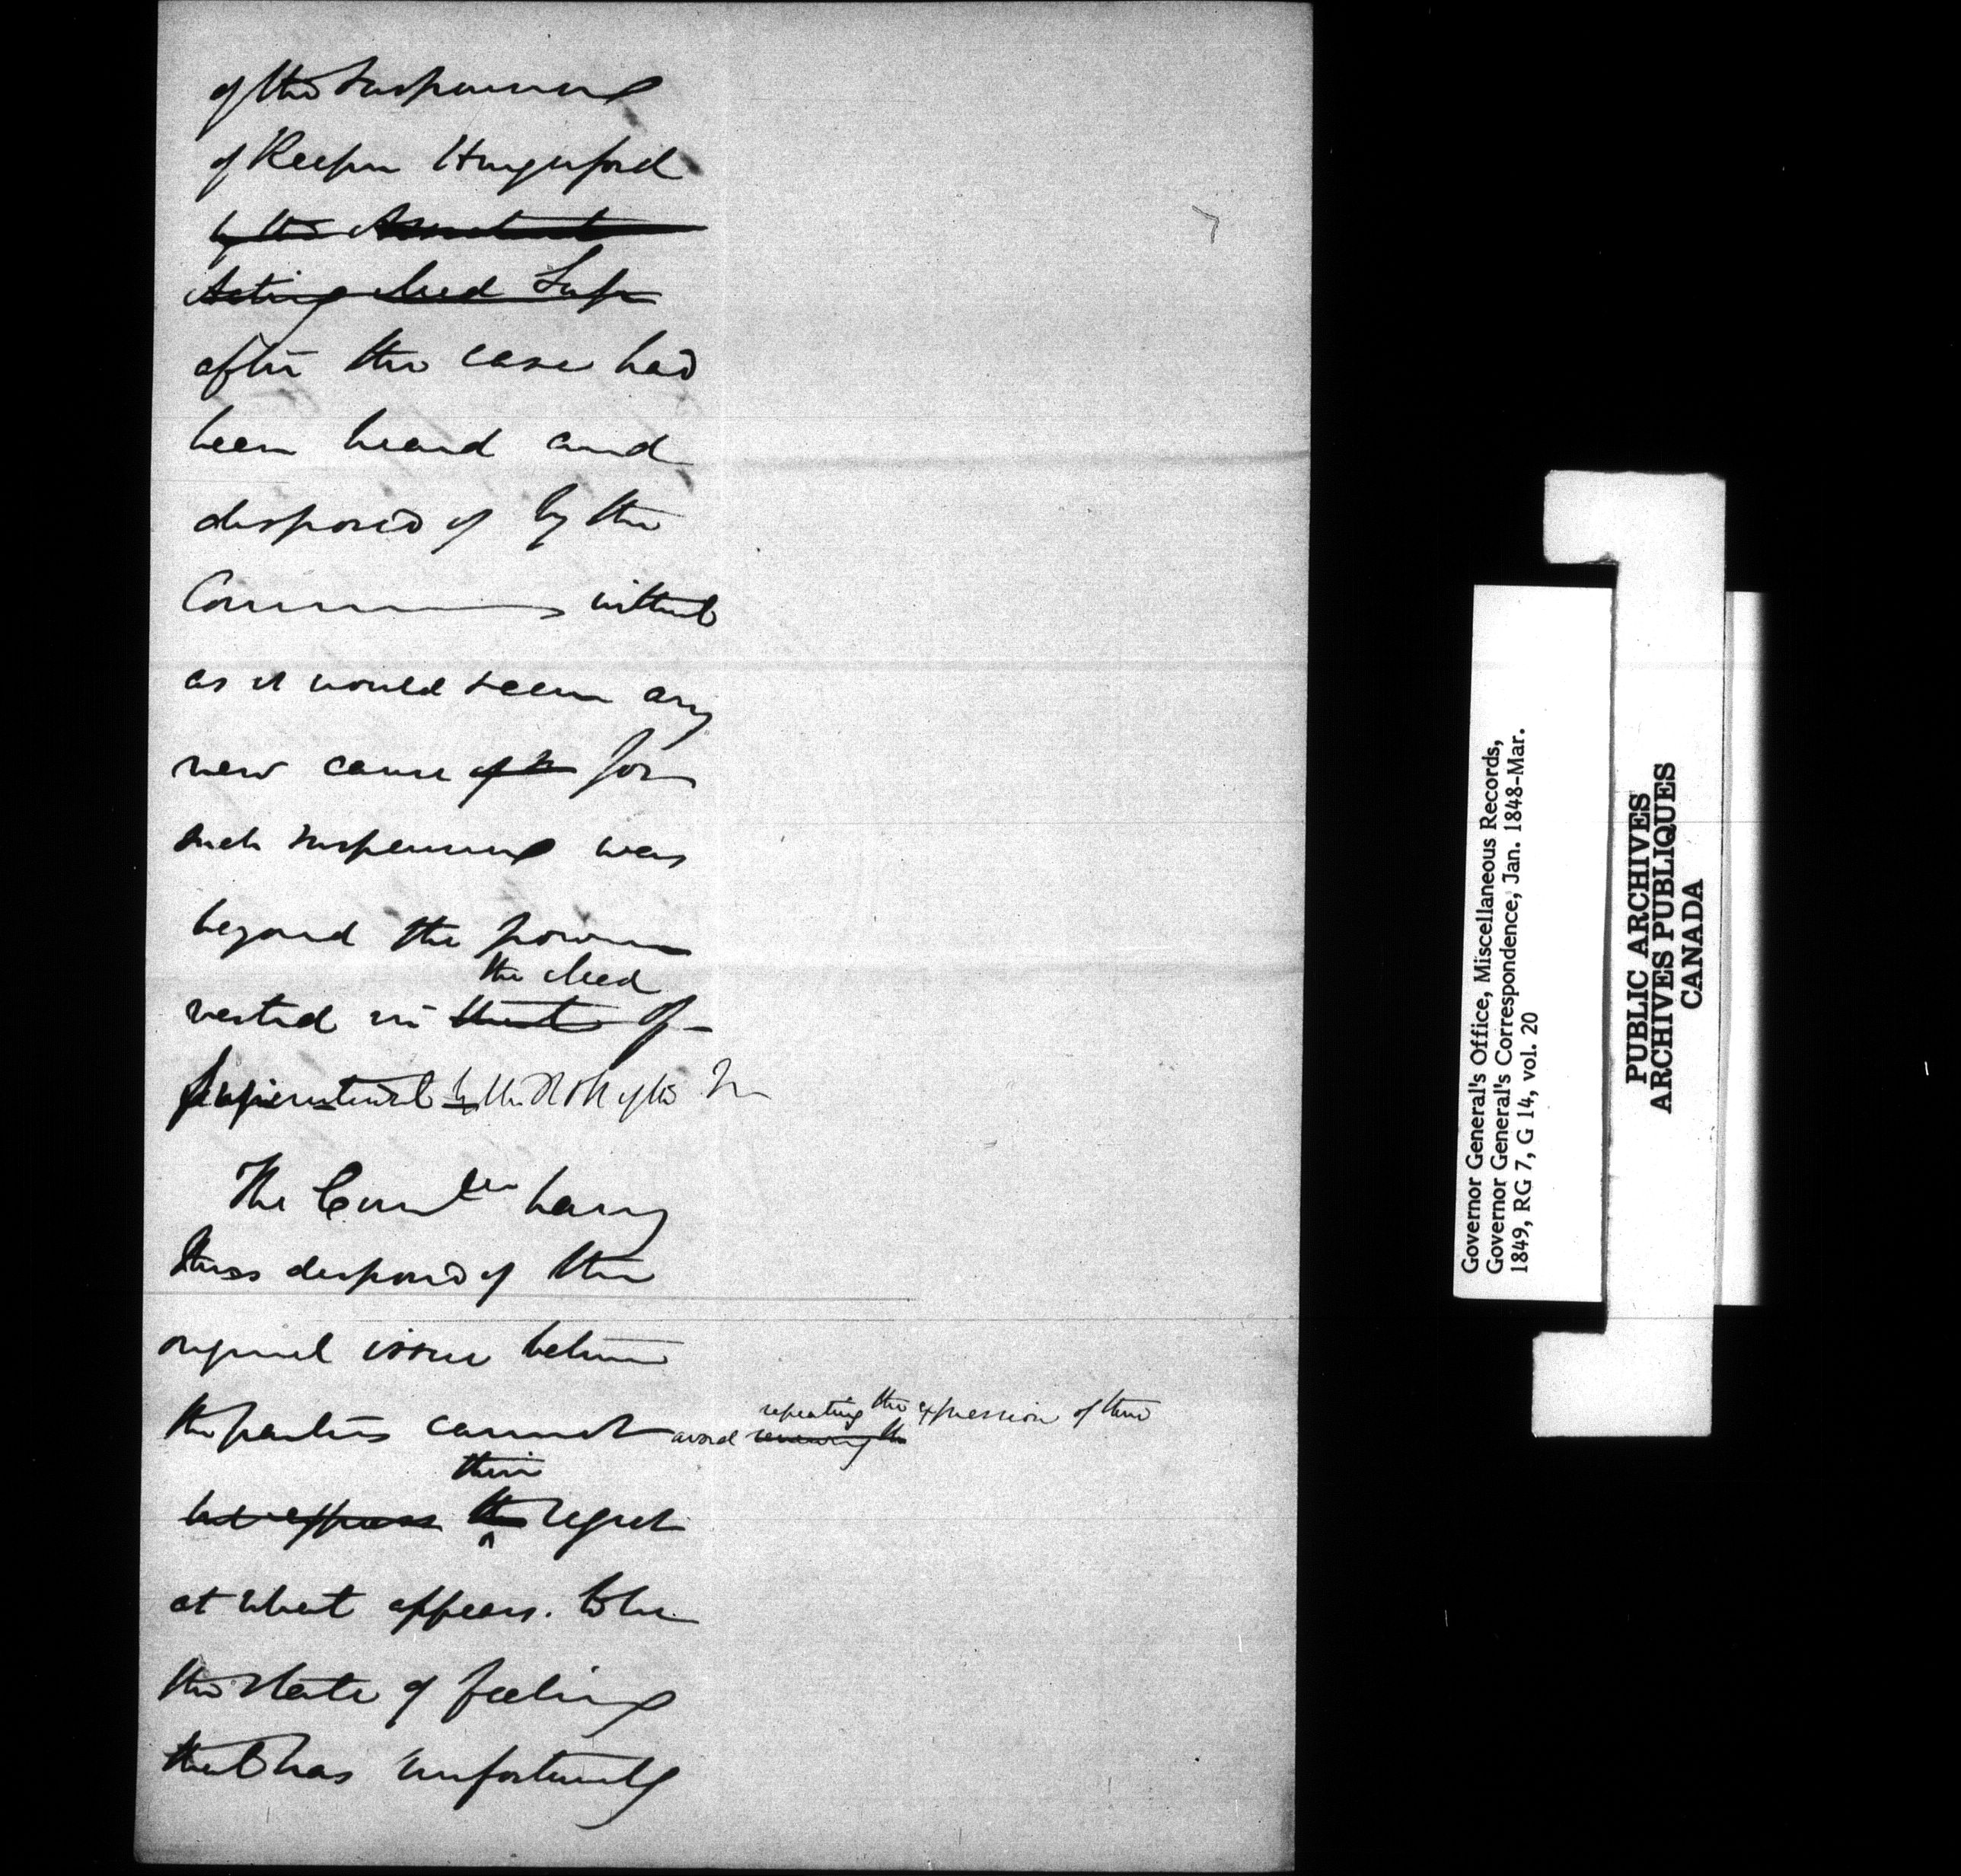 of the suspension
of Keeper Hungerford
by the Assistant
Acting Med Supr
after the case had
been heard and
disposed of by the
Commissioners without
as it would seem any
new cause of for
such suspension was
beyond the powers
the Med
vested in that Of-
Superintendt by the of the
The Comrs having
thus disposed of the
original issue between
repeating the expression of their
the parties cannot avoid renewing the
their
but express the regret
at what appears to be
the state of feeling
that has unfortunately
7
Governor General's Office, Miscellaneous Records,
Governor General's Correspondence, Jan. 1848-Mar.
1849, RG 7, G 14, vol. 20
PUBLIC ARCHIVES
ARCHIVES PUBLIQUES
CANADA